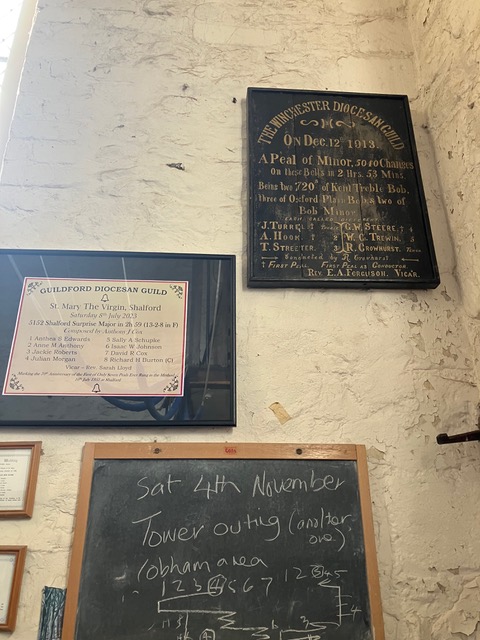 THE WINCHESTER DIOCESAN GUILD
ON DEC. 12TH 1913,
A Peal of Minor, 5040 Changes
On these Bells in 2 Hrs. 53 Mins.
Being two 720's of Kent Treble Bob,
three of Oxford Plain Bob, & two of
Bob Minor.
EACH CALLED DIFFERENT
J. TURREL † Treble G. W. STEERE. † 4
A. HOOK. † 2 W. C. TREWIN. 5
T. STREETER. 3 R. CROWHURST. Tenor
Conducted by R. Crowhurst.
† FIRST PEAL FIRST PEAL AS CONDUCTOR
REV. E. A. FERGUSON, VICAR.
GUILDFORD DIOCESAN GUILD
St. Mary The Virgin, Shalford
Saturday 8th July 2023
5152 Shalford Surprise Major in 2h 59 (13-2-8 in F)
Composed by Anthony J Cox
1 Anthea S Edwards 5 Sally A Schupke
2 Anne M Anthony 6 Isaac W Johnson
3 Jackie Roberts 7 David R Cox
4 Julian Morgan 8 Richard H Burton (C)
Vicar - Rev. Sarah Lloyd
Sat 4th November
Tower outing (another
one)
Cobham area
1 2 3 4 5 6 7